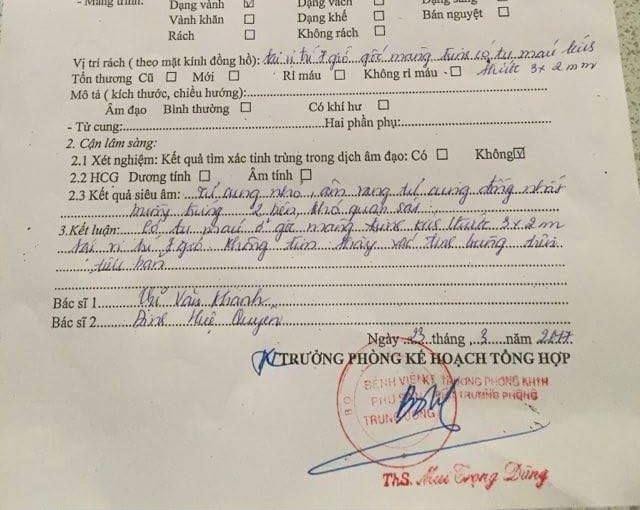 - Màng trinh: Dạng vành ☑ Dạng
Vành khăn ☐ Dạng khế ☐ Bán nguyệt ☐
Rách ☐ Không rách ☐
Vị trí rách ( theo mặt kính đồng hồ): tại vị trí 7 giờ gốc màng trinh có tụ máu kích
Tổn thương Cũ ☐ Mới ☐ Rỉ máu ☐ Không rỉ máu ☐ thước 3x2 mm
Mô tả ( kích thước, chiều hướng):
Âm đạo Bình thường ☐ Có khí hư ☐
- Tử cung: Hai phần phụ:
2. Cận lâm sàng:
2.1 Xét nghiệm: Kết quả tìm xác tinh trùng trong dịch âm đạo: Có ☐ Không ☑
2.2 HCG Dương tính ☐ Âm tính ☐
2.3 Kết quả siêu âm: Tử cung nhỏ, âm vang tử cung đồng nhất
buồng trứng 2 bên khó quan sát.
3.Kết luận: Có tụ máu ở gốc màng trinh kích thước 3x2 m
tại vị trí 7 giờ. Không tìm thấy xác tinh trùng trên
tiêu bản
Bác sĩ 1 Vũ Văn Khanh
Bác sĩ 2 Quyên
Ngày 23 tháng 3 năm 2017
TRƯỞNG PHÒNG KẾ HOẠCH TỔNG HỢP
BỆNH VIỆN
TRƯỞNG PHÒNG KHTH
PHỤ SẢN
TRƯỞNG PHÒNG
TRUNG ƯƠNG
BỘ
ThS. Mai Trọng Dũng